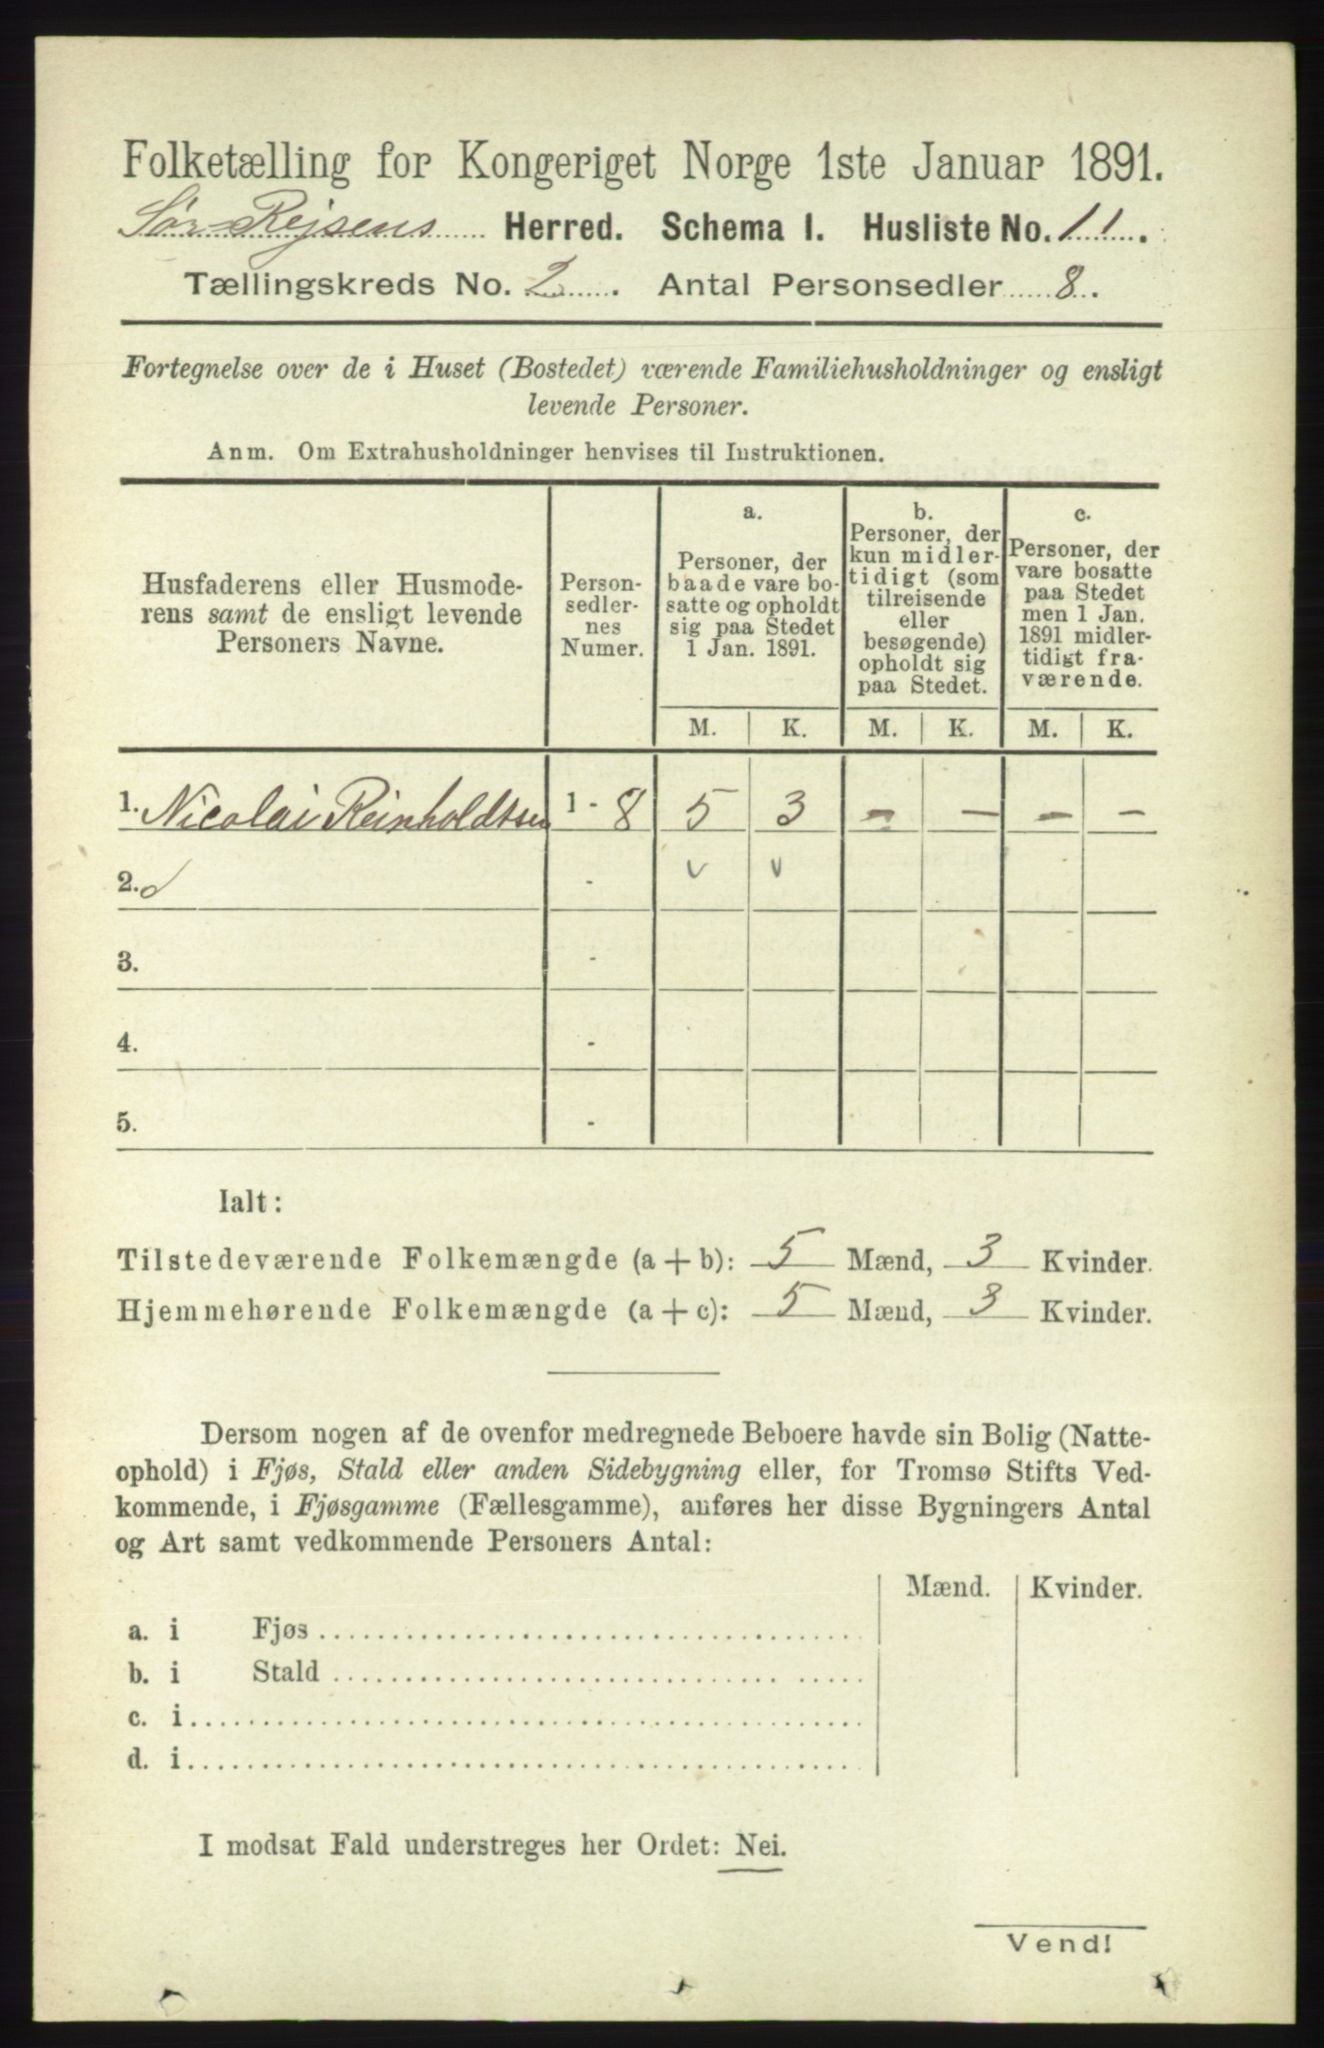 Folketælling for Kongeriget Norge 1ste Januar 1891.
Sør-Rejsens Herred. Schema I. Husliste No. 11.
Tællingskreds No. 2. Antal Personsedler 8.
Fortegnelse over de i Huset (Bostedet) værende Familiehusholdninger og ensligt
levende Personer.
Anm. Om Extrahusholdninger henvises til Instruktionen.
Husfaderens eller Husmode-
rens samt de ensligt levende
Personers Navne.
Person-
sedler-
nes
Numer.
a.
Personer, der
baade vare bo-
satte og opholdt
sig paa Stedet
1 Jan. 1891.
b.
Personer, der
kun midler-
tidigt (som
tilreisende
eller
besøgende)
opholdt sig
paa Stedet.
c.
Personer, der
vare bosatte
paa Stedet
men 1 Jan.
1891 midler-
tidigt fra-
værende.
M. K. M. K. M. K.
1. Nicolai Reinholdtsen 1 - 8 5 3 - - - -
2. - v v
3. -
4. -
5. -
Ialt:
Tilstedeværende Folkemængde (a + b): 5 Mænd, 3 Kvinder.
Hjemmehørende Folkemængde (a + c): 5 Mænd, 3 Kvinder.
Dersom nogen af de ovenfor medregnede Beboere havde sin Bolig (Natte-
ophold) i Fjøs, Stald eller anden Sidebygning eller, for Tromsø Stifts Ved-
kommende, i Fjøsgamme (Fællesgamme), anføres her disse Bygningers Antal
og Art samt vedkommende Personers Antal:
Mænd. Kvinder.
a. i Fjøs
b. i Stald
c. i
d. i
I modsat Fald understreges her Ordet: Nei.
Vend!